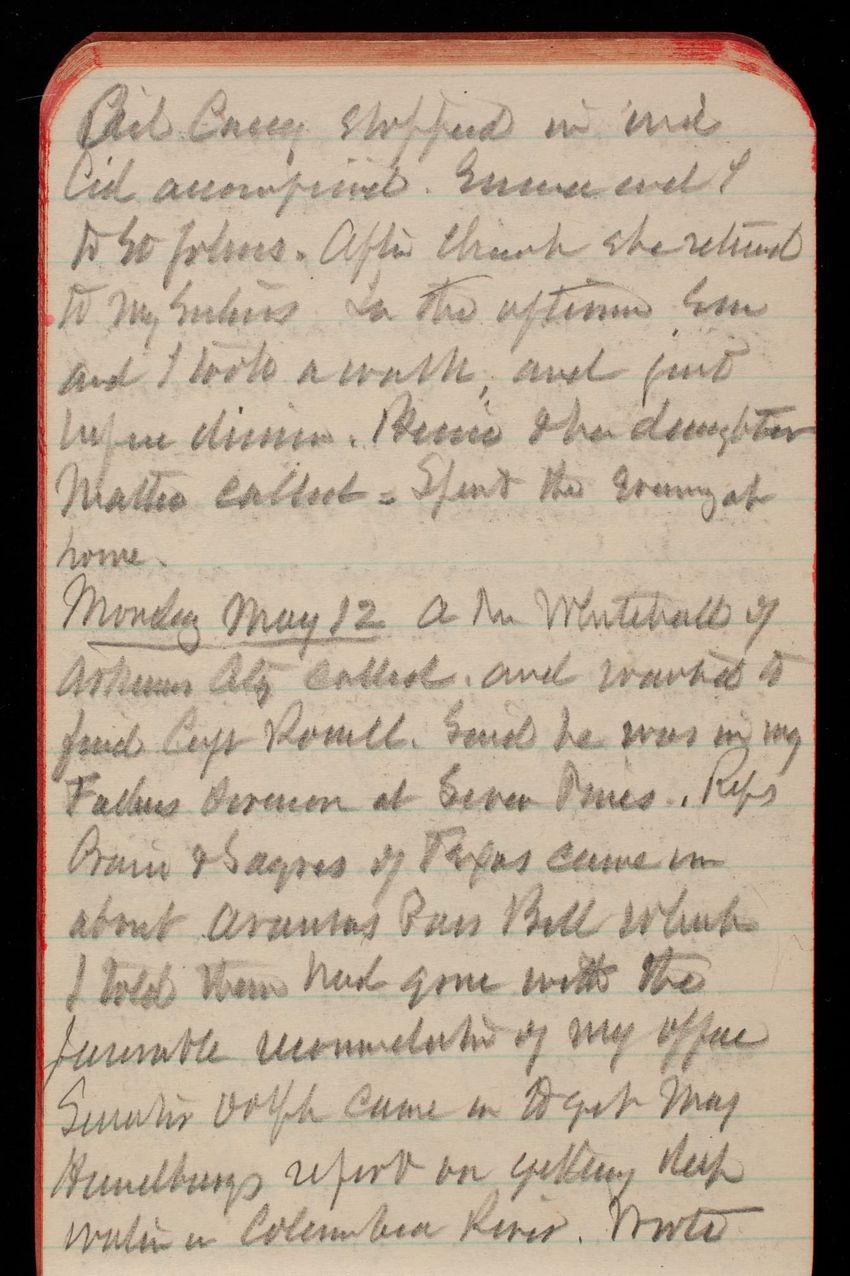 stopped in and
Cid accompanied. Emma and I
to St Johns. After church she returned
to In the afternoon
and I took a walk, and just
before dinner. & her daughter
called - Spent the Evening at
home.
Monday May 12 A Mr Whitehall of
Arkansas City called. and wanted to
find Capt Powell. Said he was in my
Fathers division at Seven Pines. Reps
Crain & Sayres of Texas came in
about Aransas Pass Bill which
I told them had gone with the
favorable recommendation of my office
Senator Dolph came in to get Maj
Handburys report on getting deep
water in Columbia River. Wrote